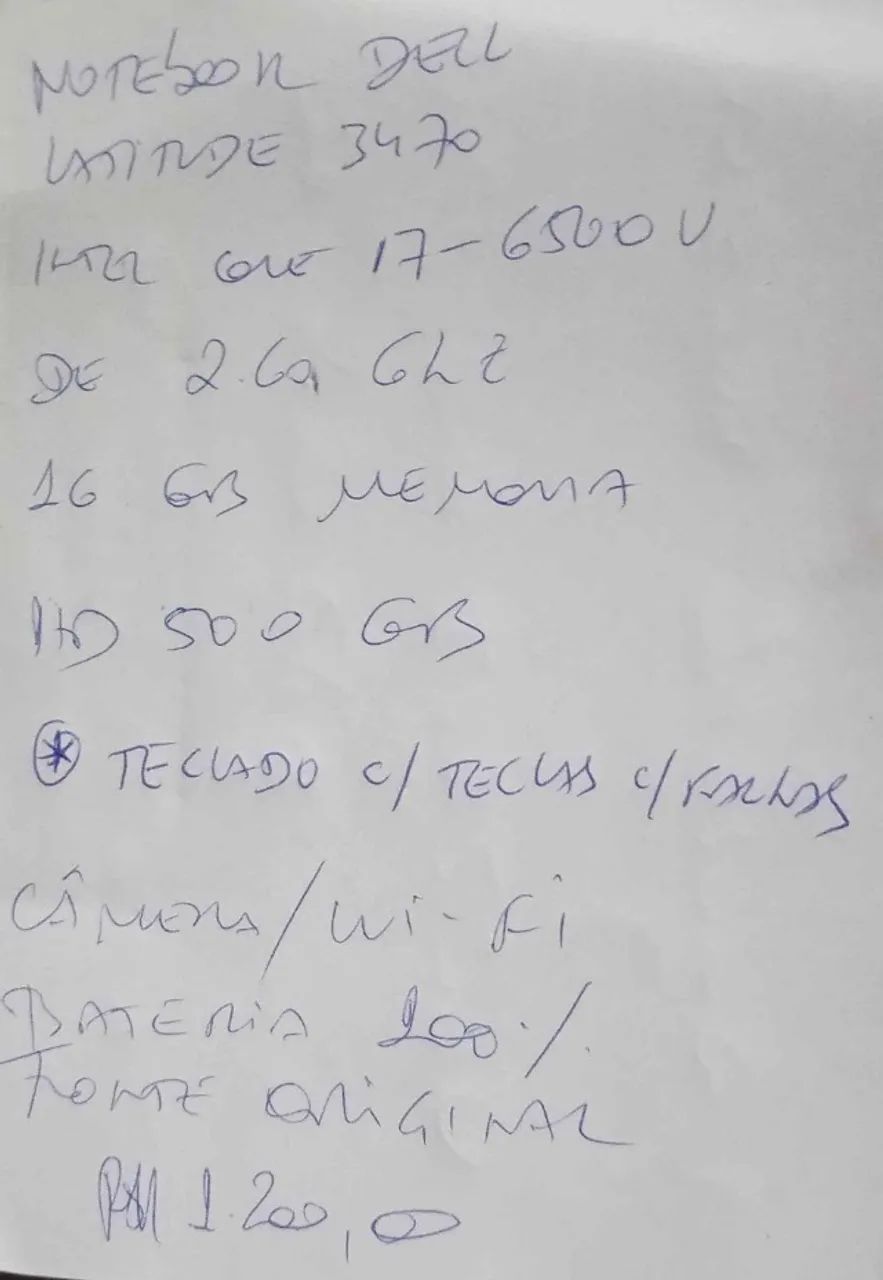 NOTEBOOK DELL
LATITUDE 3470
INTEL CORE I7-6500U
DE 2.60 GHZ
16 GB MEMORIA
HD 500 GB
* TECLADO C/ TECLAS C/ FALHAS
CÂMERA/WI-FI
BATERIA 100%
FONTE ORIGINAL
1.200,00